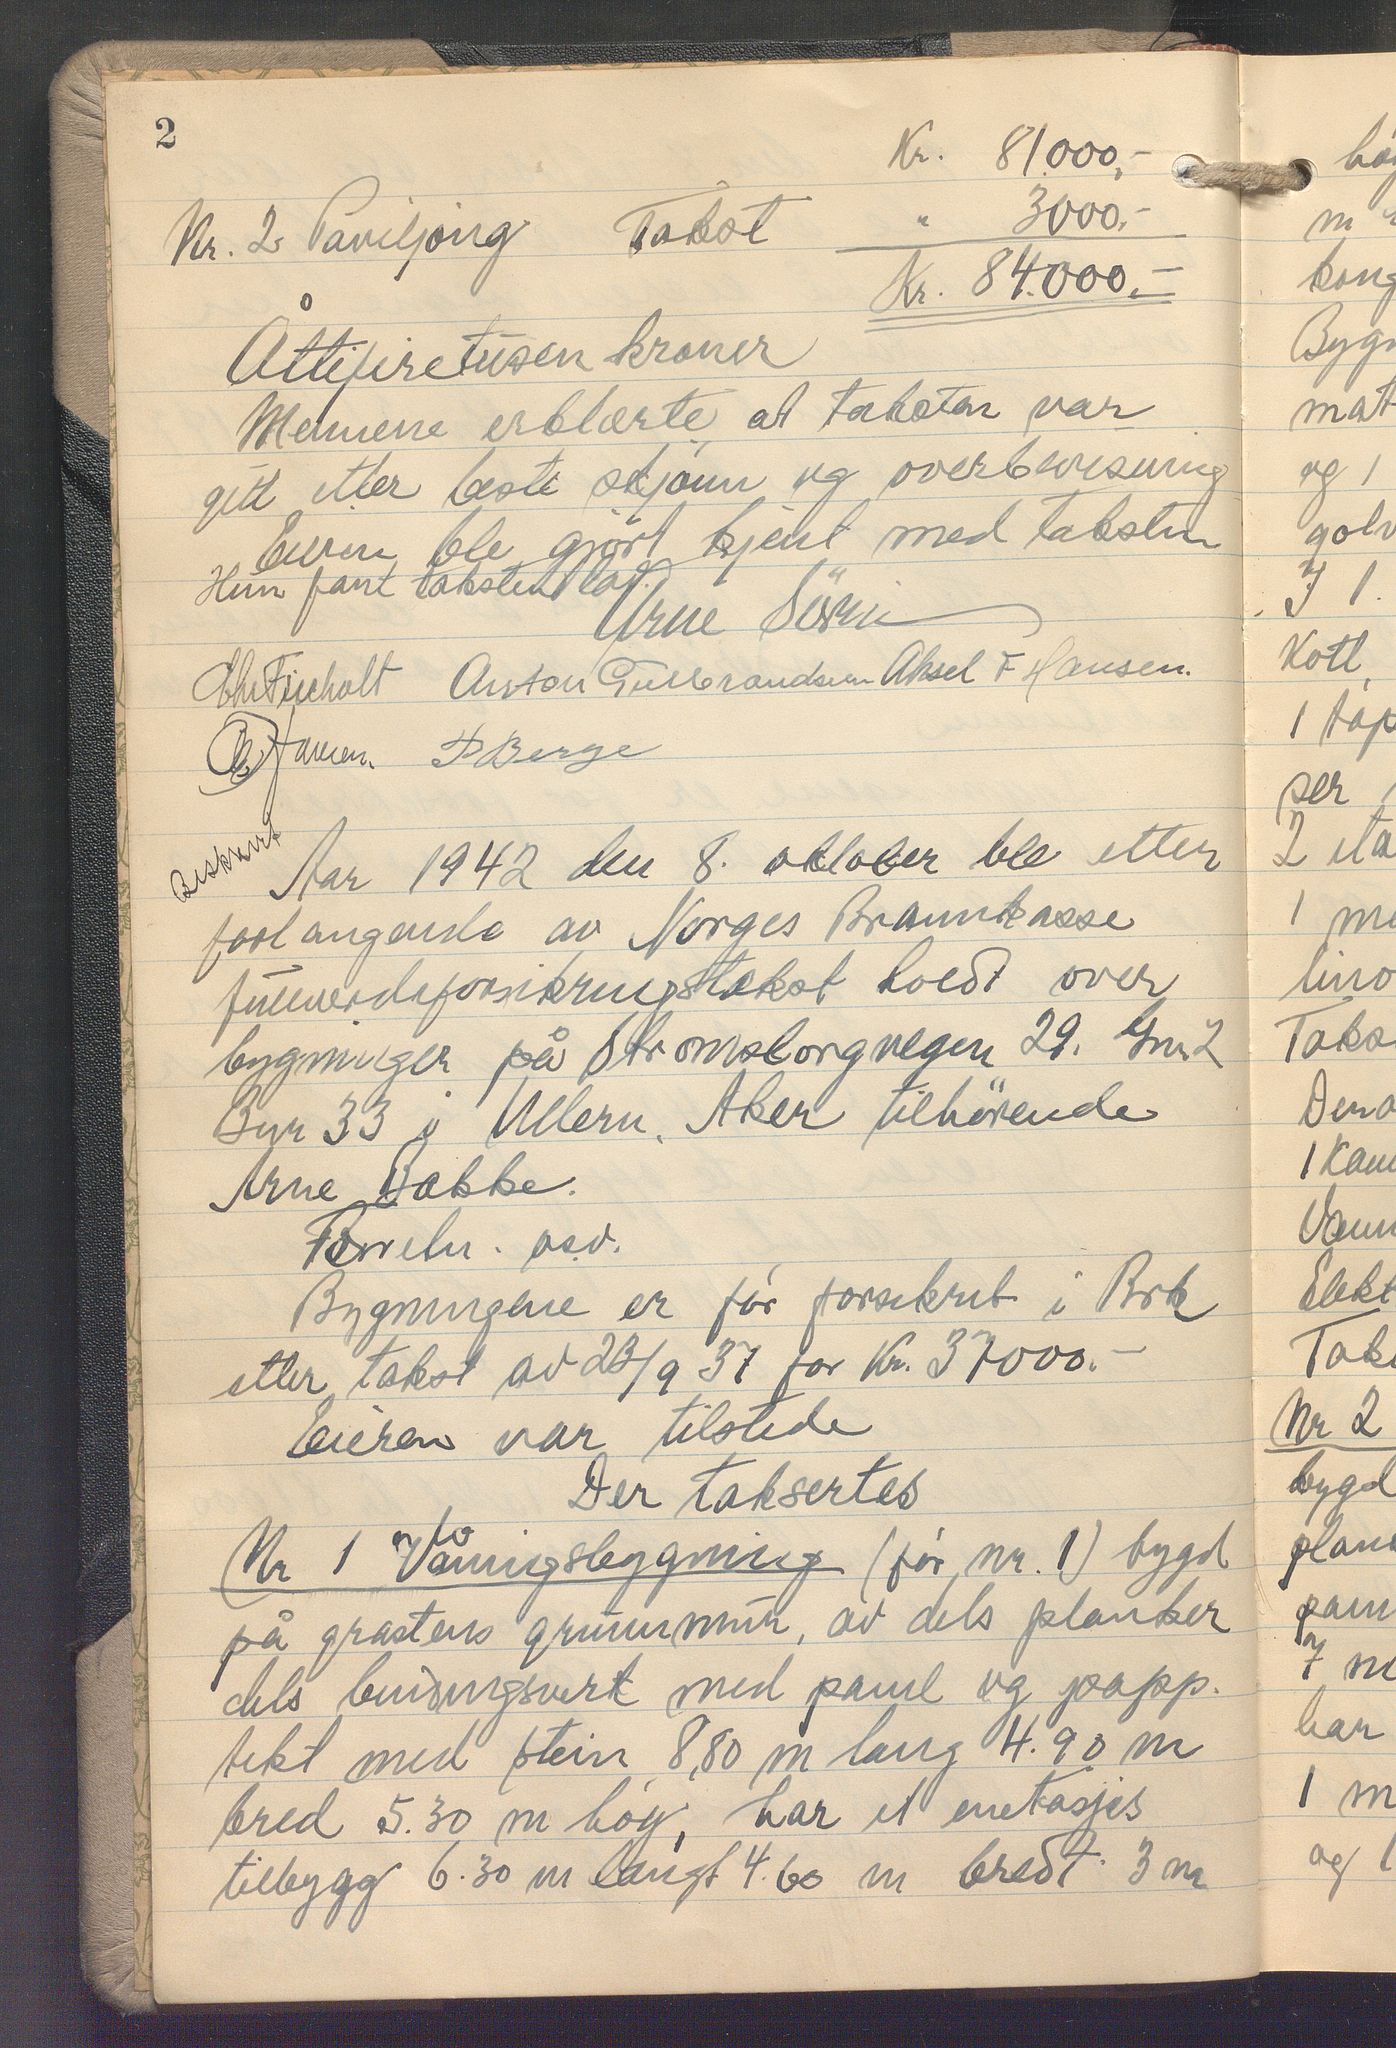 2
Kr. 81.000,-
Nr. 2 Paviljong Takst " 3000.-
Kr. 84.000.-
Åttifiretusen kroner
Mennene erklærte at taksten var
gitt etter beste skjønn og overbevisning
Eieren ble gjört kjent med taksten
Hun fant taksten lav.
Arne
Anton Gulbrandsen Aksel F Hansen.
P Berge
Beskrevet
Aar 1942 den 8. oktober ble etter
forlangende av Norges Brannkasse
fullverdiforsikringstakst holdt over
bygninger på Strømsborgvegen 29. Gnr 2
Bnr 33 i Ullern, Aker tilhörende
Arne Bakke.
Forretn. osv.
Bygningene er før forsikret i Brk
etter takst av 23/9 37 for Kr. 37000.-
Eieren var tilstede
Der taksertes
Nr 1 Våningsbygning (før nr. 1) bygd
på gråsteins grunnmur, av dels planker
dels bindingsverk med panel og papp.
tekt med stein 8,80 m lang 4.90 m
bred 5.30 m høg, har et enetasjes
tilbygg 6.30 m langt 4.60 m bredt. 3 m
høg
m
kong
Bygn
mat
og 1
golv
I 1.
Kotl
1 tap
ser
2 eta
1 me
lino
Taks
Dera
1 Kam
Vann
Elekt
Taks
Nr 2
bygd
plank
pan
7 m
har
1 m
og